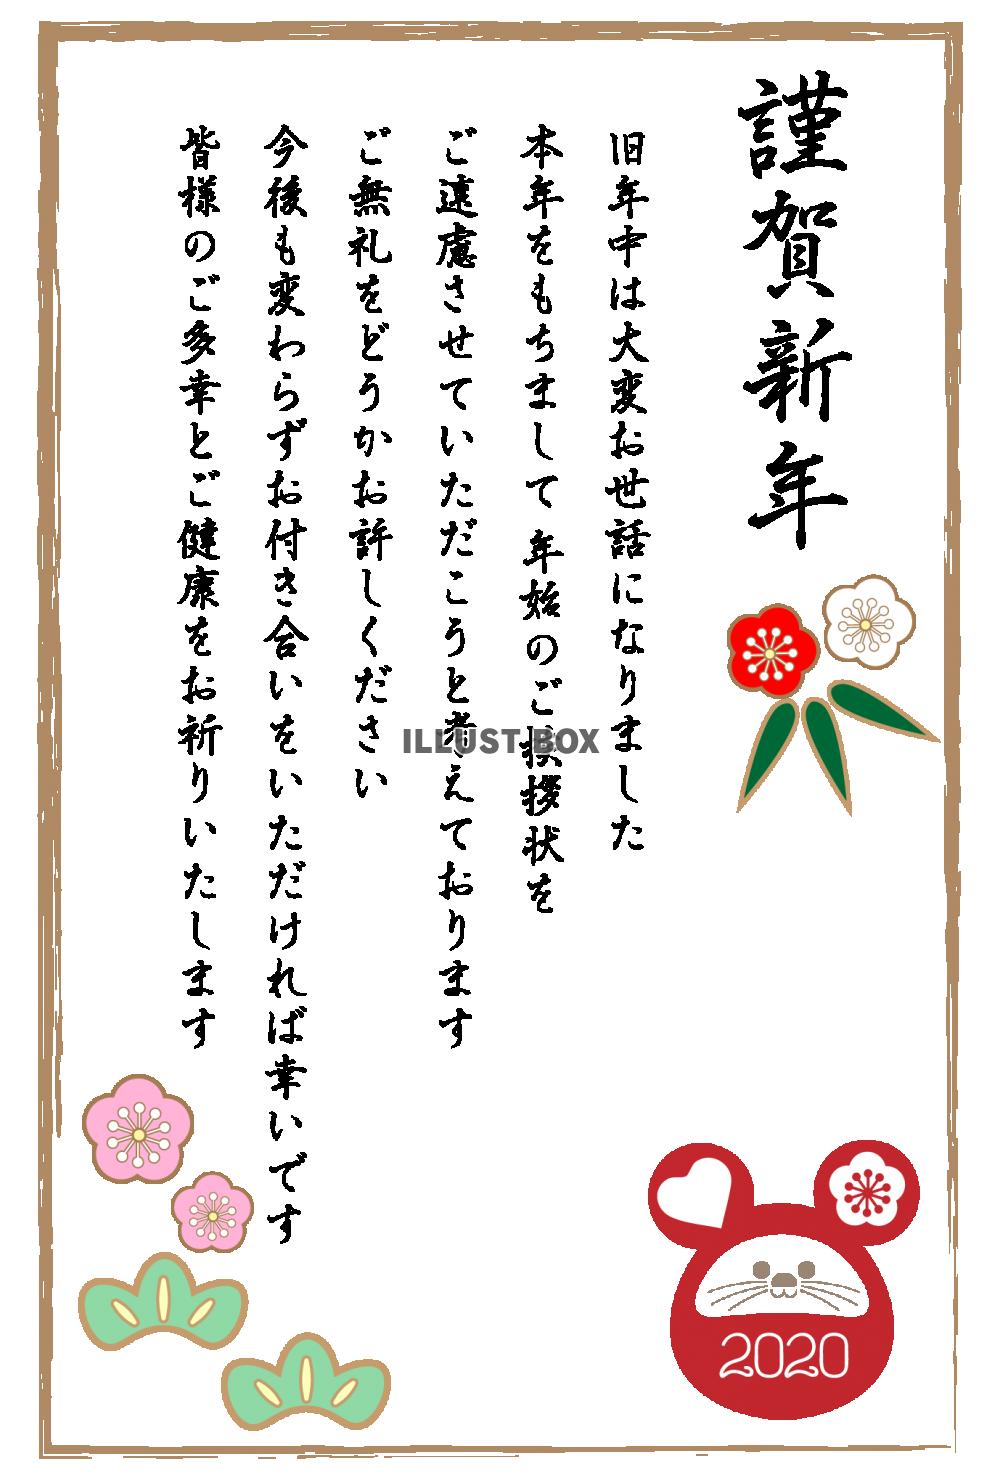 謹賀新年
旧年中は大変お世話になりました
本年をもちまして 年始のご挨拶状を
ご遠慮させていただこうと考えております
ご無礼をどうかお許しください
今後も変わらずお付き合いをいただければ幸いです
皆様のご多幸とご健康をお祈りいたします
ILLUST BOX
2020